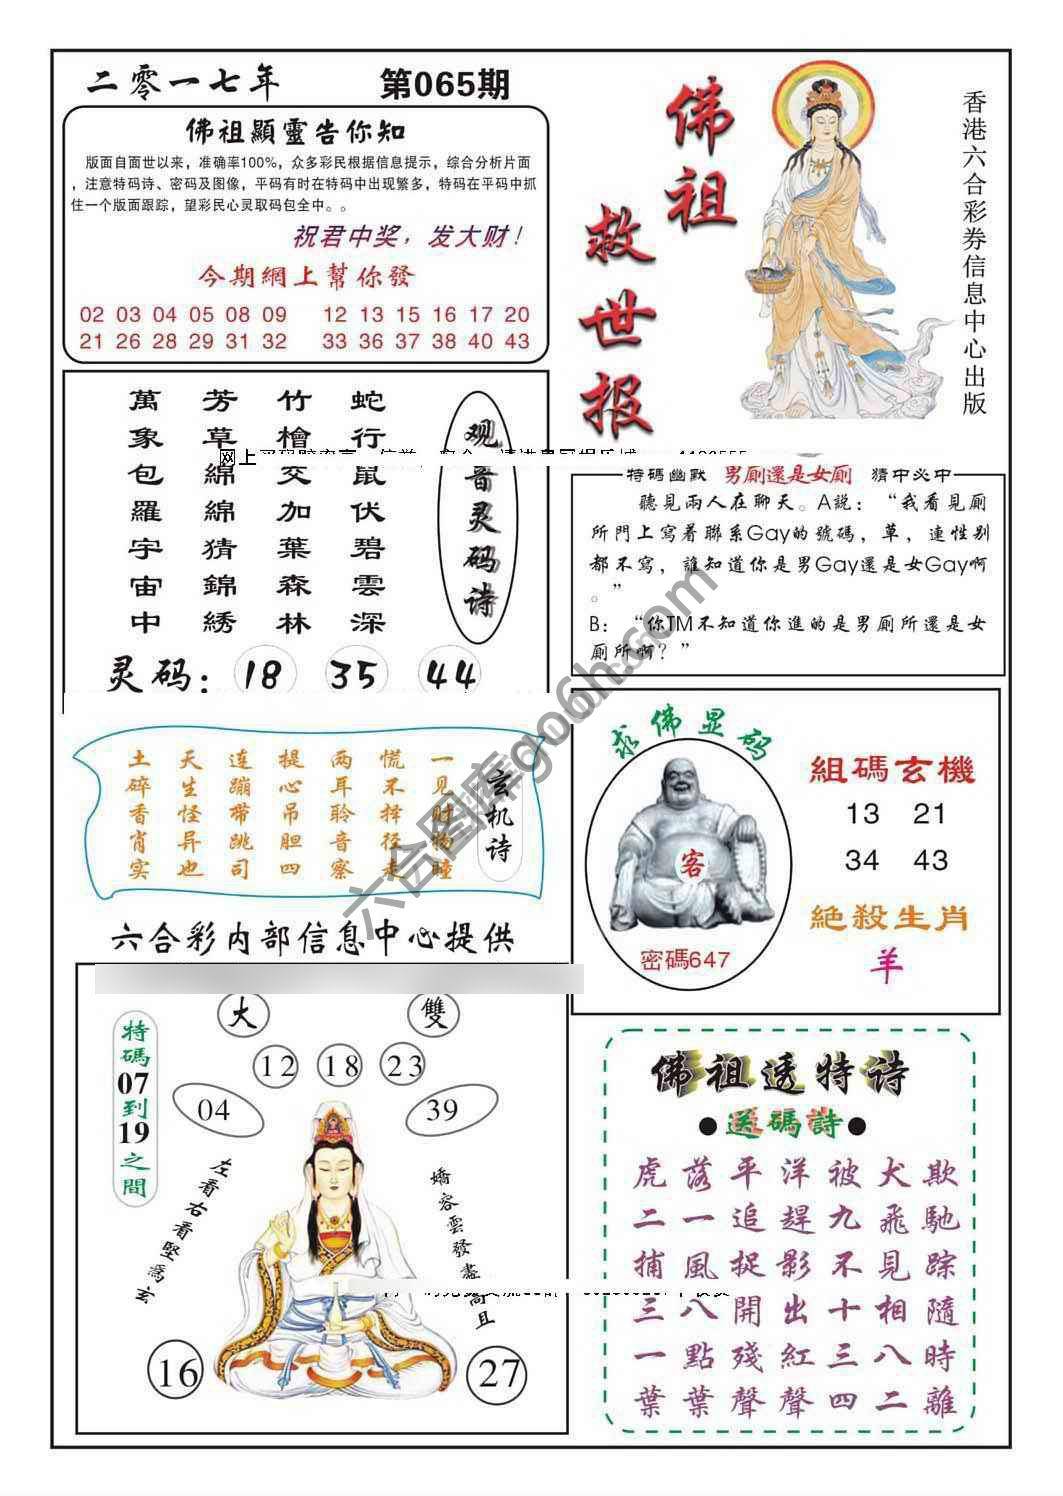 二零一七年
第065期
佛祖顯靈告你知
版面自面世以来，准确率100%，众多彩民根据信息提示，综合分析片面
，注意特码诗、密码及图像，平码有时在特码中出现繁多，特码在平码中抓
住一个版面跟踪，望彩民心灵取码包全中。。
祝君中奖，发大财！
今期網上幫你發
02 03 04 05 08 09 12 13 15 16 17 20
21 26 28 29 31 32 33 36 37 38 40 43
佛祖
救世报
香港六合彩券信息中心出版
观音灵码诗
蛇行鼠伏碧雲深
竹檜交加葉森林
芳草綿綿猜錦綉
萬象包羅宇宙中
灵码：18 35 44
特碼幽默 男厠還是女厠 猜中必中
聽見兩人在聊天。A説：“我看見厠
所門上寫着聯系Gay的號碼，草，連性别
都不寫，誰知道你是男Gay還是女Gay啊
。”
B：“你TM不知道你進的是男厠所還是女
厠所啊？”
玄机诗
一见财物瞳
慌不择径走
两耳聆音察
提心吊胆四
连蹦带跳司
天生怪异也
土碎香肖实
求佛显码
客
密碼647
組碼玄機
13 21
34 43
絶殺生肖
羊
六合彩内部信息中心提供
大
雙
12 18 23
04
39
特碼07到19之間
左看右看堅爲玄
16
27
佛祖透特诗
●送碼詩●
虎落平洋被犬欺
二一追趕九飛馳
捕風捉影不見踪
三八開出十相隨
一點殘紅三八時
葉葉聲聲四二離
六合图库go6h.com